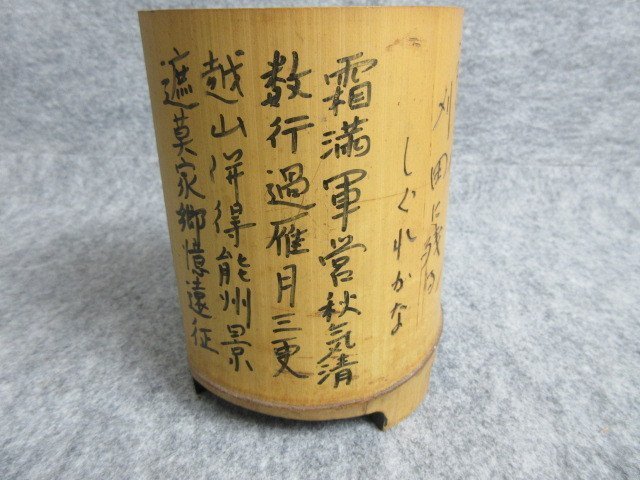 刈田に残る
しぐれかな
霜満軍営秋気清
数行過雁月三更
越山併得能州景
遮莫家郷憶遠征